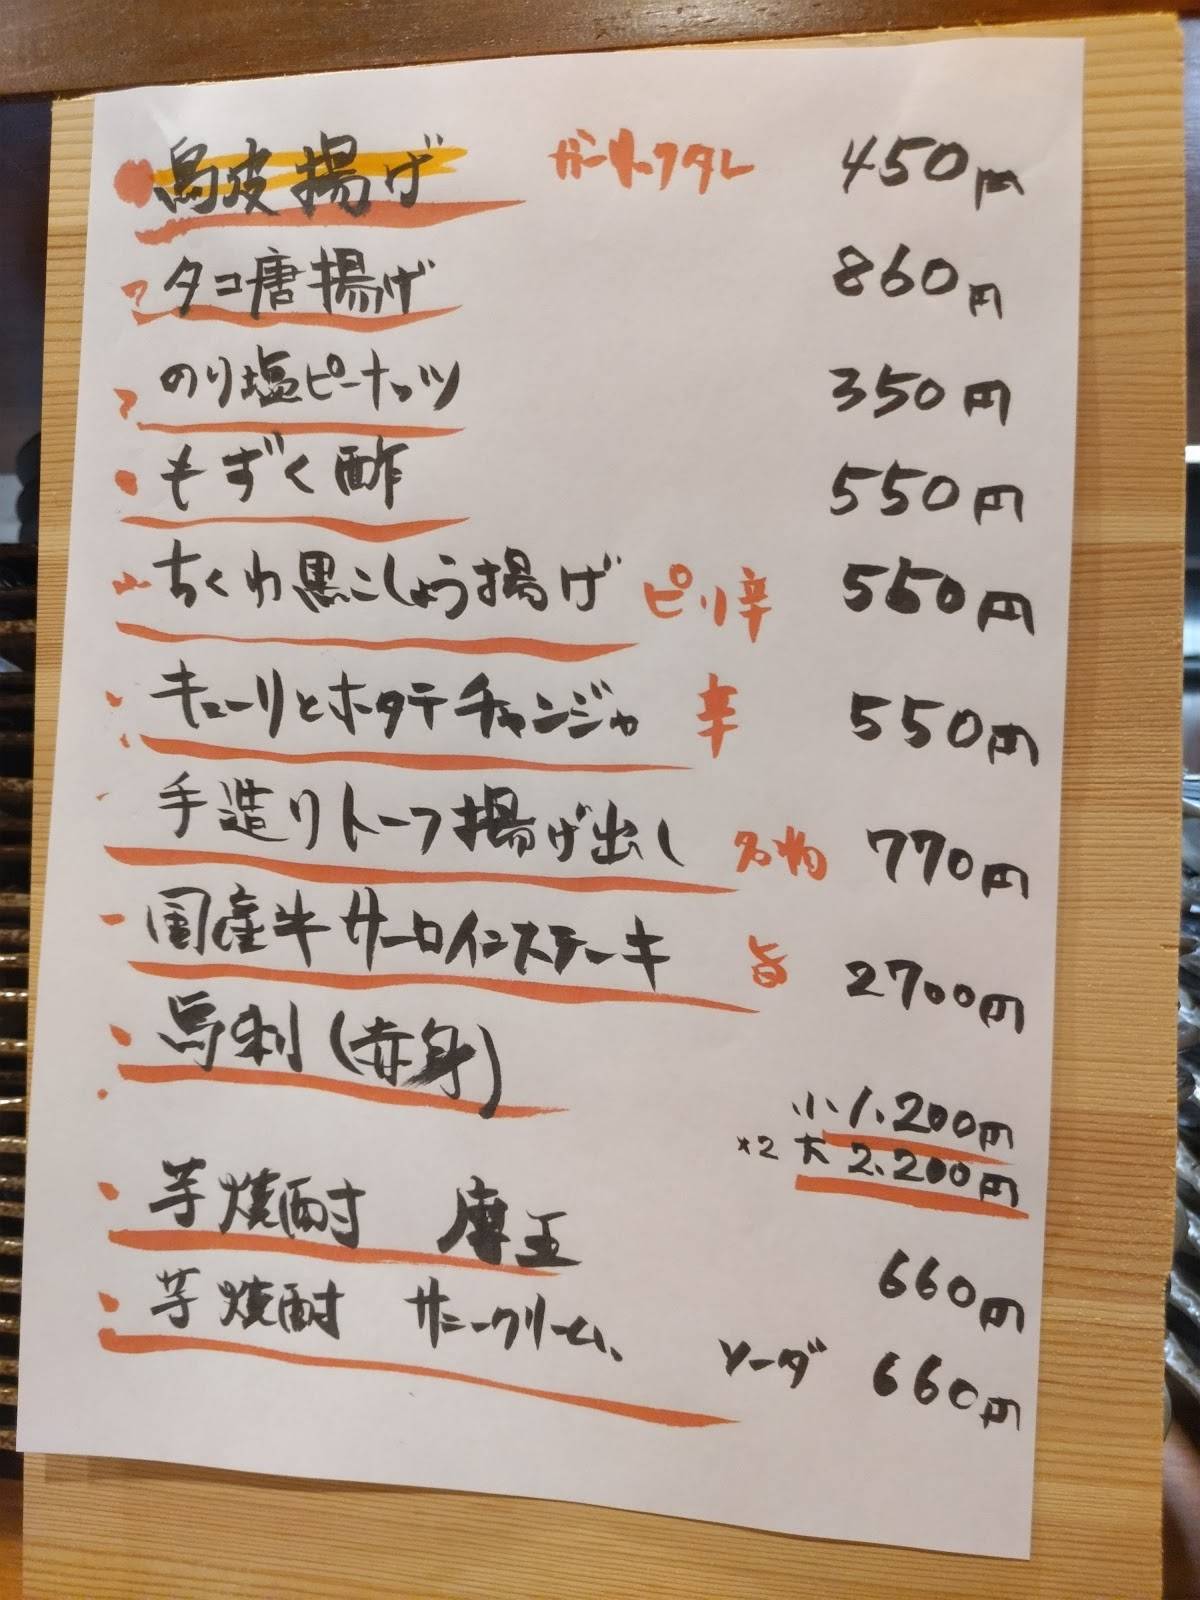 鳥皮揚げ ガーリックタレ 450円
タコ唐揚げ 860円
のり塩ピーナッツ 350円
もずく酢 550円
ちくわ黒こしょう揚げ ピリ辛 550円
キューリとホタテチャンジャ 辛 550円
手造りトーフ揚げ出し 名物 770円
国産牛サーロインステーキ 旨 2700円
馬刺(赤身)
小 1,200円
×2 大 2,200円
芋焼酎 魔王 660円
芋焼酎 サニークリーム、 ソーダ 660円